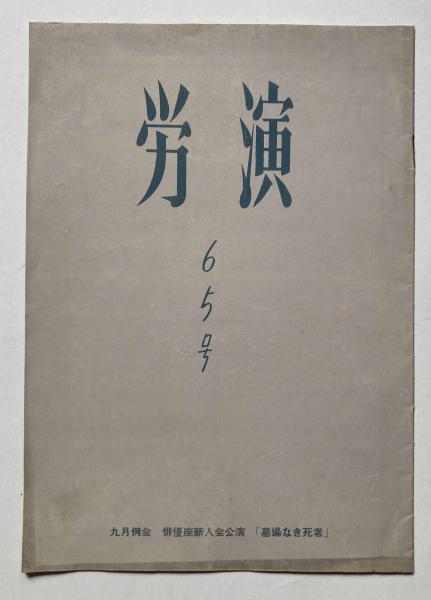 労演
65号
九月例会　俳優座新人会公演　「墓場なき死者」